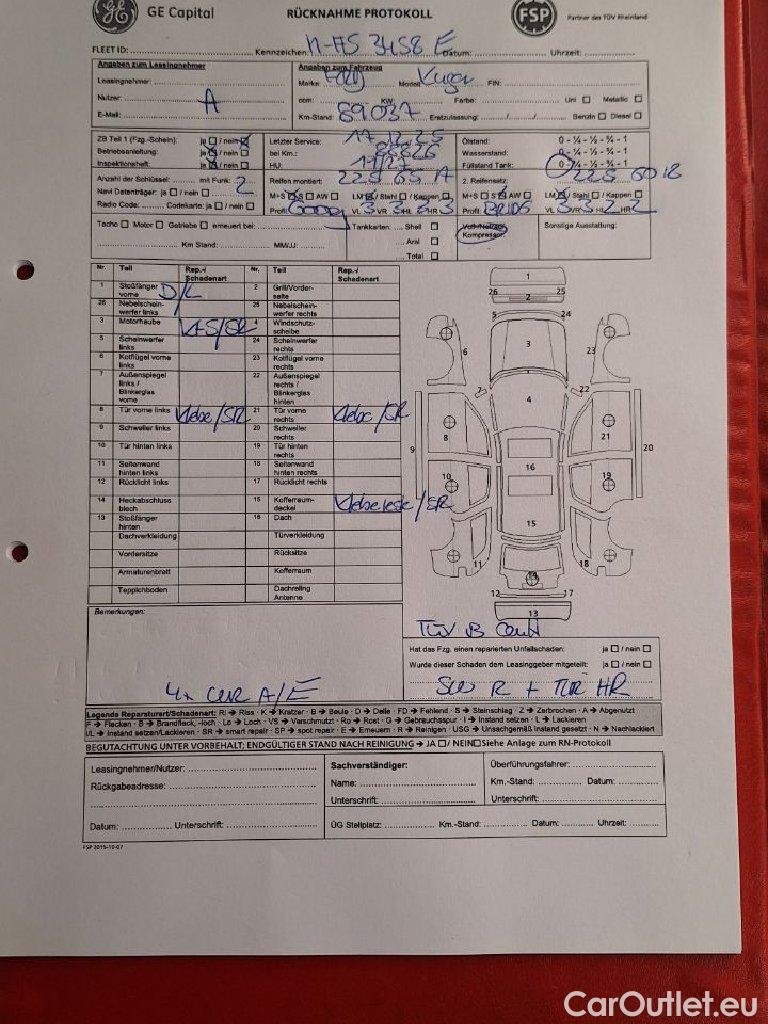 GE Capital
RÜCKNAHME PROTOKOLL
FSP Partner des TÜV Rheinland
FLEET ID: Kennzeichen: M-AS 3458 E Datum: Uhrzeit:
Angaben zum Leasingnehmer
Angaben zum Fahrzeug
Leasingnehmer:
Marke: Ford Modell: Kuga FIN:
Nutzer: A
ccm: KW: Farbe: Uni Metallic
E-Mail:
Km-Stand: 89037 Erstzulassung: Benzin Diesel
ZB Teil 1 (Fzg.-Schein): ja / nein
Betriebsanleitung: ja / nein
Inspektionsheft: ja / nein
Letzter Service:
bei Km.:
HU:
Ölstand: 0 - ¼ - ½ - ¾ - 1
Wasserstand: 0 - ¼ - ½ - ¾ - 1
Füllstand Tank: 0 - ¼ - ½ - ¾ - 1
Anzahl der Schlüssel: mit Funk: 2
Navi Datenträger: ja / nein
Radio Code: Codekarte: ja / nein
Reifen montiert: 225 65 17
M+S S AW LM / Stahl / Kappen
Profil: VL 3 VR 3 HL 3 HR 3
2. Reifensatz: 225 60 18
M+S S AW LM / Stahl / Kappen
Profil: VL 3 VR 3 HL 2 HR 2
Tacho Motor Getriebe erneuert bei:
Km Stand: MM/JJ:
Tankkarten: Shell
Aral
Total
Kompressor:
Sonstige Ausstattung:
Nr. Teil Rep.-/ Schadenart Nr. Teil Rep.-/ Schadenart
1 Stoßfänger vorne D/L 2 Grill/Vorderseite
26 Nebelscheinwerfer links 25 Nebelscheinwerfer rechts
3 Motorhaube 4 Windschutzscheibe
5 Scheinwerfer links 24 Scheinwerfer rechts
6 Kotflügel vorne links 23 Kotflügel vorne rechts
7 Außenspiegel links / Blinkerglas vorne 22 Außenspiegel rechts / Blinkerglas hinten
8 Tür vorne links Klebe/SR 21 Tür vorne rechts Klebe/SR
9 Schweller links 20 Schweller rechts
10 Tür hinten links 19 Tür hinten rechts
11 Seitenwand hinten links 18 Seitenwand hinten rechts
12 Rücklicht links 17 Rücklicht rechts
14 Heckabschlussblech 15 Kofferraumdeckel Klebereste/SR
13 Stoßfänger hinten 16 Dach
Dachverkleidung Türverkleidung
Vordersitze Rücksitze
Armaturenbrett Kofferraum
Teppichboden Dachreling Antenne
1
26 25
2
5 24
3
6 23
7 22
4
8 21
9 20
16
10 19
15
11 18
14
12 17
13
Bemerkungen:
Hat das Fzg. einen reparierten Unfallschaden: ja / nein
Wurde dieser Schaden dem Leasinggeber mitgeteilt: ja / nein
SW R + TÜR HR
Legende Reparaturart/Schadenart: RI → Riss · K → Kratzer · B → Beule · D → Delle · FD → Fehlend · S → Steinschlag · Z → Zerbrochen · A → Abgenutzt
F → Flecken · B → Brandfleck, -loch · Lo → Loch · VS → Verschmutzt · Ro → Rost · G → Gebrauchsspur · I → Instand setzen · L → Lackieren
I/L → Instand setzen/Lackieren · SR → smart repair · SP → spot repair · E → Erneuern · R → Reinigen · USG → Unsachgemäß instand gesetzt · N → Nachlackiert
BEGUTACHTUNG UNTER VORBEHALT; ENDGÜLTIGER STAND NACH REINIGUNG → JA / NEIN Siehe Anlage zum RN-Protokoll
Leasingnehmer/Nutzer:
Rückgabeadresse:
Datum: Unterschrift:
Sachverständiger:
Name:
Unterschrift:
Überführungsfahrer:
Km.-Stand: Datum:
Unterschrift:
ÜG Stellplatz: Km.-Stand: Datum: Uhrzeit:
FSP 2015-10-07
CarOutlet.eu